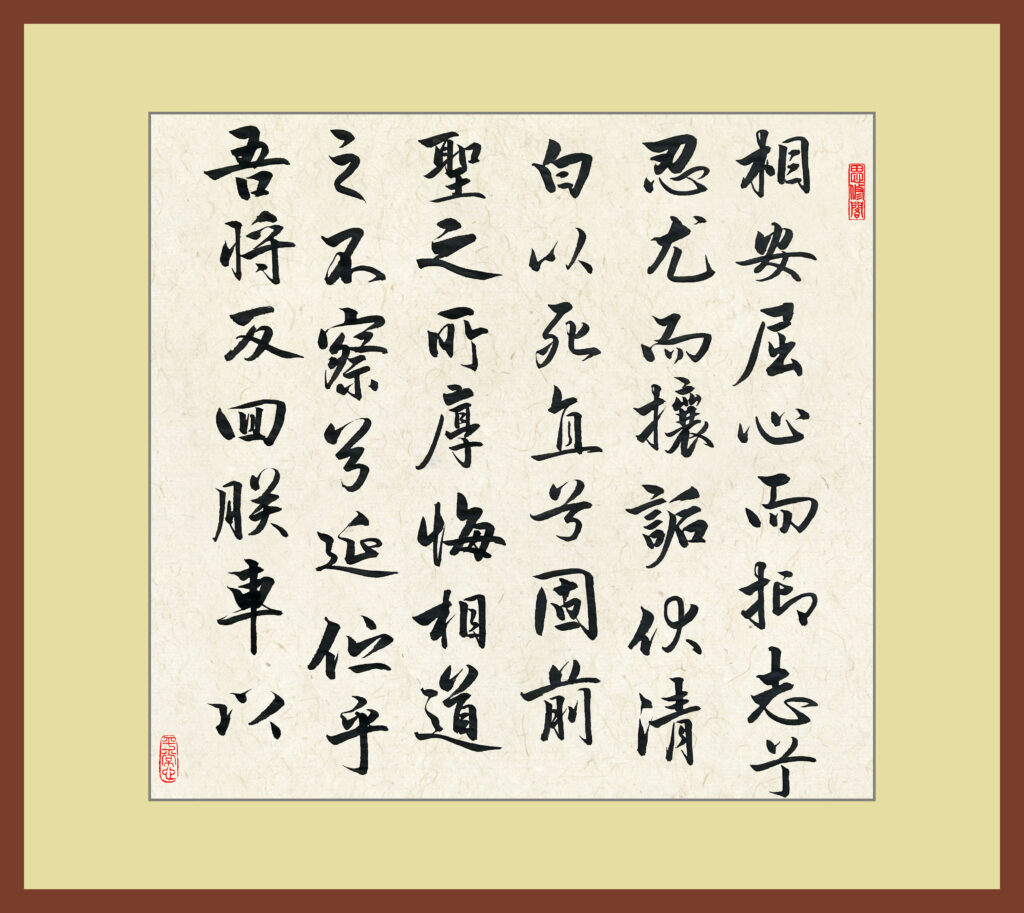 思修閣
相安屈心而抑志兮
忍尤而攘詬伏清
白以死直兮固前
聖之所厚悔相道
之不察兮延伫乎
吾将反回朕車以
平常心